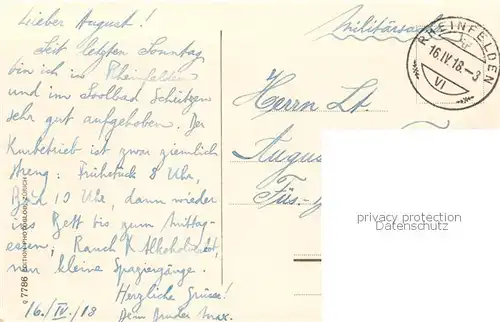 Lieber August!
Seit letzten Sonntag
bin ich in Rheinfelden
und im Soolbad Schützen
sehr gut aufgehoben. Der
Kurbetrieb ist zwar ziemlich
streng: Frühstück 8 Uhr,
Bad 10 Uhr, dann wieder
ins Bett bis zum Mittag-
essen; Rauch &
nur kleine Spaziergänge.
Herzliche Grüsse!
16./IV./18 Dein Bruder Max.
Q 7786 EDITION PHOTOGLOB, ZÜRICH
Militärsache
RHEINFELDEN
16.IV.18.-3
VI
Herrn Lt.
August
Füs.-
privacy protection
Datenschutz